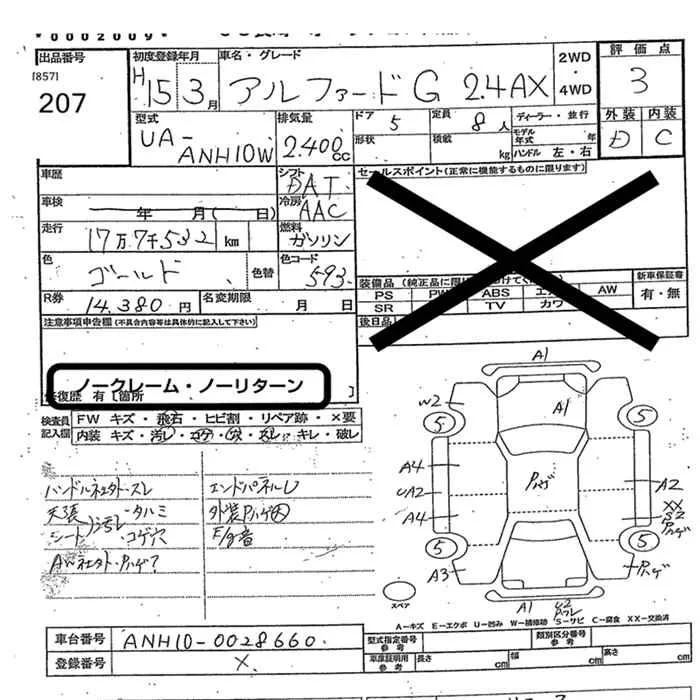 *0002009*
出品番号
[857]
207
初度登録年月
H15 3月
車名・グレード
アルファードG 2.4AX
2WD
・
4WD
評価点
3
外装 内装
D C
型式
UA-
ANH10W
排気量
2.400cc
ドア 5
形状
定員 8人
積載 kg
ディーラー・並行
モデル年式 年
ハンドル 左・右
車歴
シフト
DAT
車検 年 月(日)
冷房
AAC
走行
17万7千532 km
燃料
ガソリン
色
ゴールド
色替
色コード
593
R券
14,380円
名変期限 月 日
セールスポイント(正常に機能するものに限ります)
装備品
PS ABS AW
SR TV カワ
後日品
新車保証書
有・無
注意事項申告欄(不具合内容等は具体的に記入して下さい)
ノークレーム・ノーリターン
修復歴 有 [箇所 ]
検査員
記入欄
FW キズ・飛石・ヒビ割・リペア跡・×要
内装 キズ・汚レ・コゲ・穴・スレ・キレ・破レ
ハンドル スレ
天張 タルミ
シート 汚レ・コゲ穴
エンドパネルU
外装Pハゲ
A1
W2
A1
5
5
A4
Pハゲ
UA2
A2
A4
XX
S2
Pハゲ
5
5
A3
Pハゲ
A1
U2
スペア
A−キズ E−エクボ U−凹み W−補修跡 S−サビ C−腐食 XX−交換済
車台番号
ANH10-0028660
登録番号
X
型式指定番号
参考
類別区分番号
参考
車庫証明用
参考
長さ cm
幅 cm
高さ cm